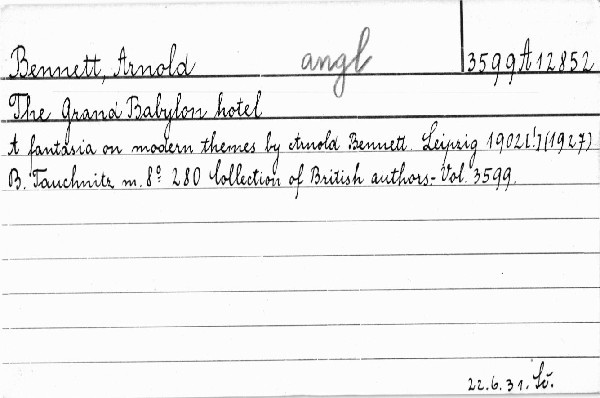 Bennett, Arnold angl 3599 A 12852
The Grand Babylon hotel
A fantasia on modern themes by Arnold Bennett. Leipzig 1902[!] (1927)
B. Tauchnitz m. 8° 280 Collection of British authors - Vol. 3599.
22.6.31.